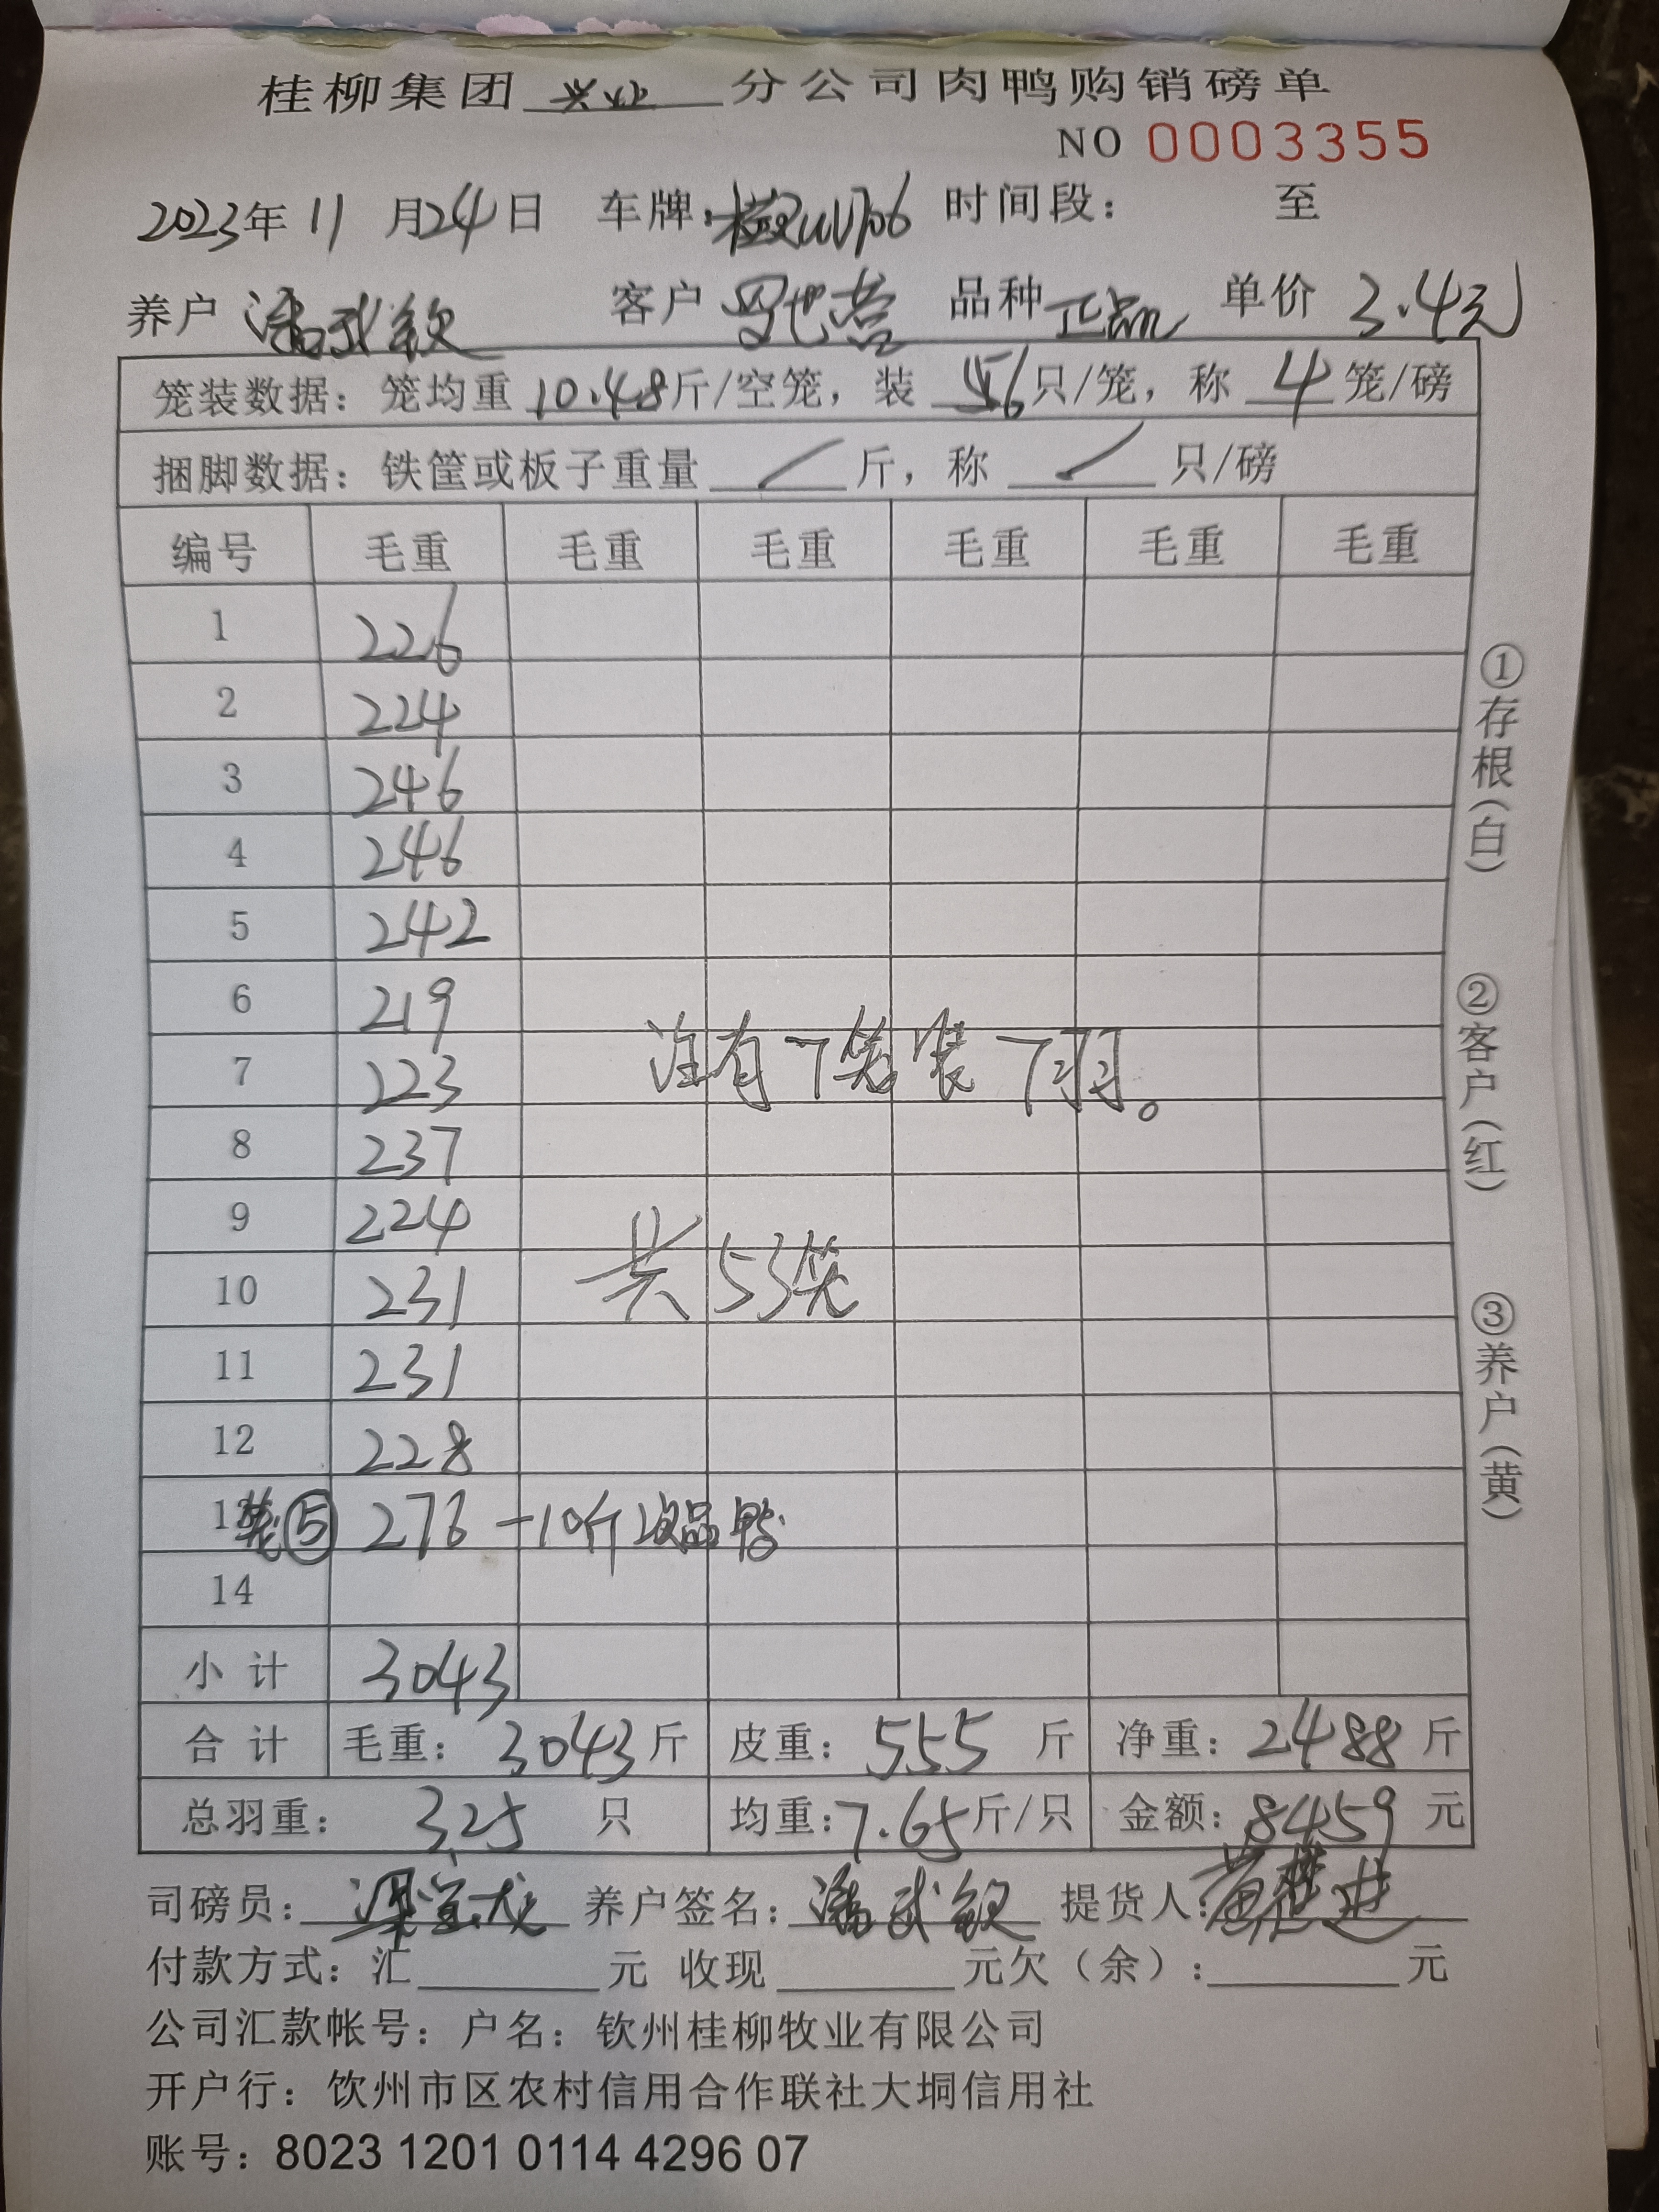 桂柳集团 兴业 分公司肉鸭购销磅单
NO 0003355
2023年 11 月 24 日 车牌: 时间段: 至
养户 潘武钦 客户 品种 正品 单价 3.4元
笼装数据: 笼均重 10.48 斤/空笼, 装 6 只/笼, 称 4 笼/磅
捆脚数据: 铁筐或板子重量 / 斤, 称 / 只/磅
编号 毛重 毛重 毛重 毛重 毛重 毛重
1 226
2 224
3 246
4 246
5 242
6 219
7 223
注有7笼装7羽。
8 237
9 224
10 231
共53笼
11 231
12 228
13 笼⑤ 276 -10斤次品鸭
14
小 计 3043
合 计 毛重: 3043 斤 皮重: 555 斤 净重: 2488 斤
总羽重: 325 只 均重: 7.65 斤/只 金额: 8459 元
司磅员: 养户签名: 潘武钦 提货人:
付款方式: 汇 元 收现 元欠(余): 元
公司汇款帐号: 户名: 钦州桂柳牧业有限公司
开户行: 饮州市区农村信用合作联社大垌信用社
账号: 8023 1201 0114 4296 07
①存根(白)
②客户(红)
③养户(黄)